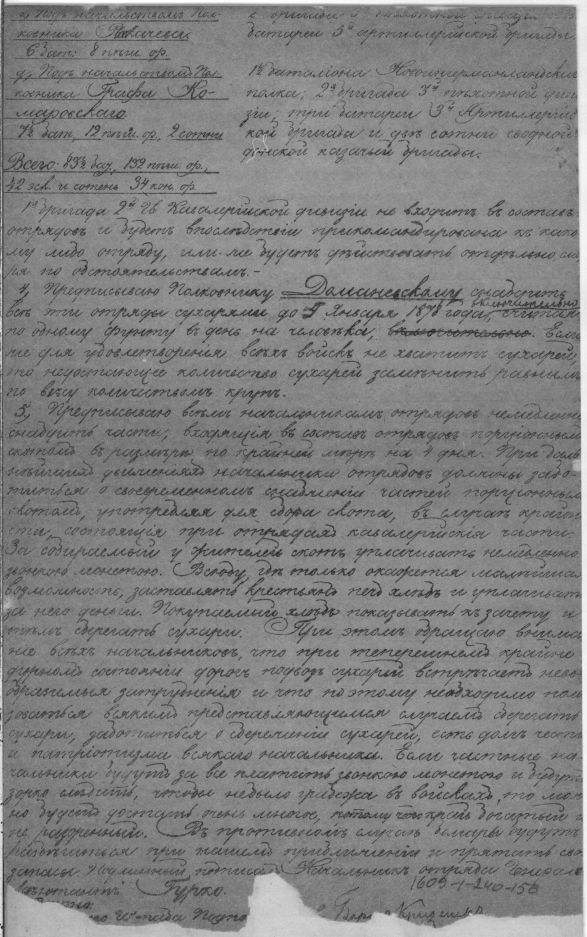 г) Подъ начальствомъ Пол-
ковника Рыкачева
6 бат. 8 пѣш. ор.
д) Подъ начальствомъ Пол-
ковника Графа Ко-
маровскаго
батареи 3й артиллерійской бригады
баталіона Новоингерманландскаго
полка; 2я бригада 3й пѣхотной диви-
зіи; три батареи 3й Артиллерійс-
кой бригады и двѣ сотни сводной
донской казачьей бригады.
7½ бат, 12 пѣш. ор, 2 сотни
Всего: 83½ бат, 192 пѣш. ор,
42 эск. и сотень 34 кон. ор.
1я бригада 2й Гв Кавалерійской дивизіи не входитъ въ составъ
отрядовъ и будетъ впослѣдствіи прикомандирована къ како-
му либо отряду, или же будетъ дѣйствовать отдѣльно смот-
ря по обстоятельствамъ.-
4, Предписываю Полковнику Доманевскому снабдить
всѣ эти отряды сухарями до 5 Января 1878 года, включительно считая
по одному фунту въ день на человѣка, включительно. Если
же для удовлетворенія всѣхъ войскъ не хватитъ сухарей
то недостающее количество сухарей замѣнить равнымъ
по вѣсу количествомъ крупъ.
5, Предписываю всѣмъ начальникамъ отрядовъ немедленно
снабдить части, входящія въ составъ отрядовъ порціоннымъ
скотомъ въ размѣрѣ по крайней мѣрѣ на 4 дня. При даль-
нѣйшихъ движеніяхъ начальники отрядовъ должны забо-
титься о своевременномъ снабженіи частей порціоннымъ
скотомъ, употребляя для сбора скота, въ случаѣ крайно-
сти, состоящія при отрядахъ кавалерійскія части.
За собираемый у жителей скотъ уплачивать немедленно
звонкою монетою. Всюду, гдѣ только окажется малѣйшая
возможность, заставлять крестьянъ печь хлѣбъ и уплачивать
за него деньги. Покупаемый хлѣбъ показывать къ зачету и
тѣмъ сберегать сухари. При этомъ обращаю внима-
ніе всѣхъ начальниковъ, что при теперешнемъ крайне
дурномъ состояніи дорогъ подвозъ сухарей встрѣчаетъ нево-
образимыя затрудненія и что поэтому необходимо поль-
зоваться всякимъ представляющимся случаемъ сберегать
сухари, заботиться о сбереженіи сухарей, есть долгъ чести
и патріотизма всякаго начальника. Если частные на-
чальники будутъ за все платить звонкою монетою и будутъ
зорко слѣдить, чтобы небыло грабежа въ войскахъ, то мож-
но будетъ достать очень много, потому что край богатый и
не разоренный. Въ противномъ случаѣ болгары будутъ
разбѣгаться при нашемъ приближеніи и прятать свои
запасы. подписалъ Начальникъ отряда Генералъ
Гурко.
1609-1-240-156